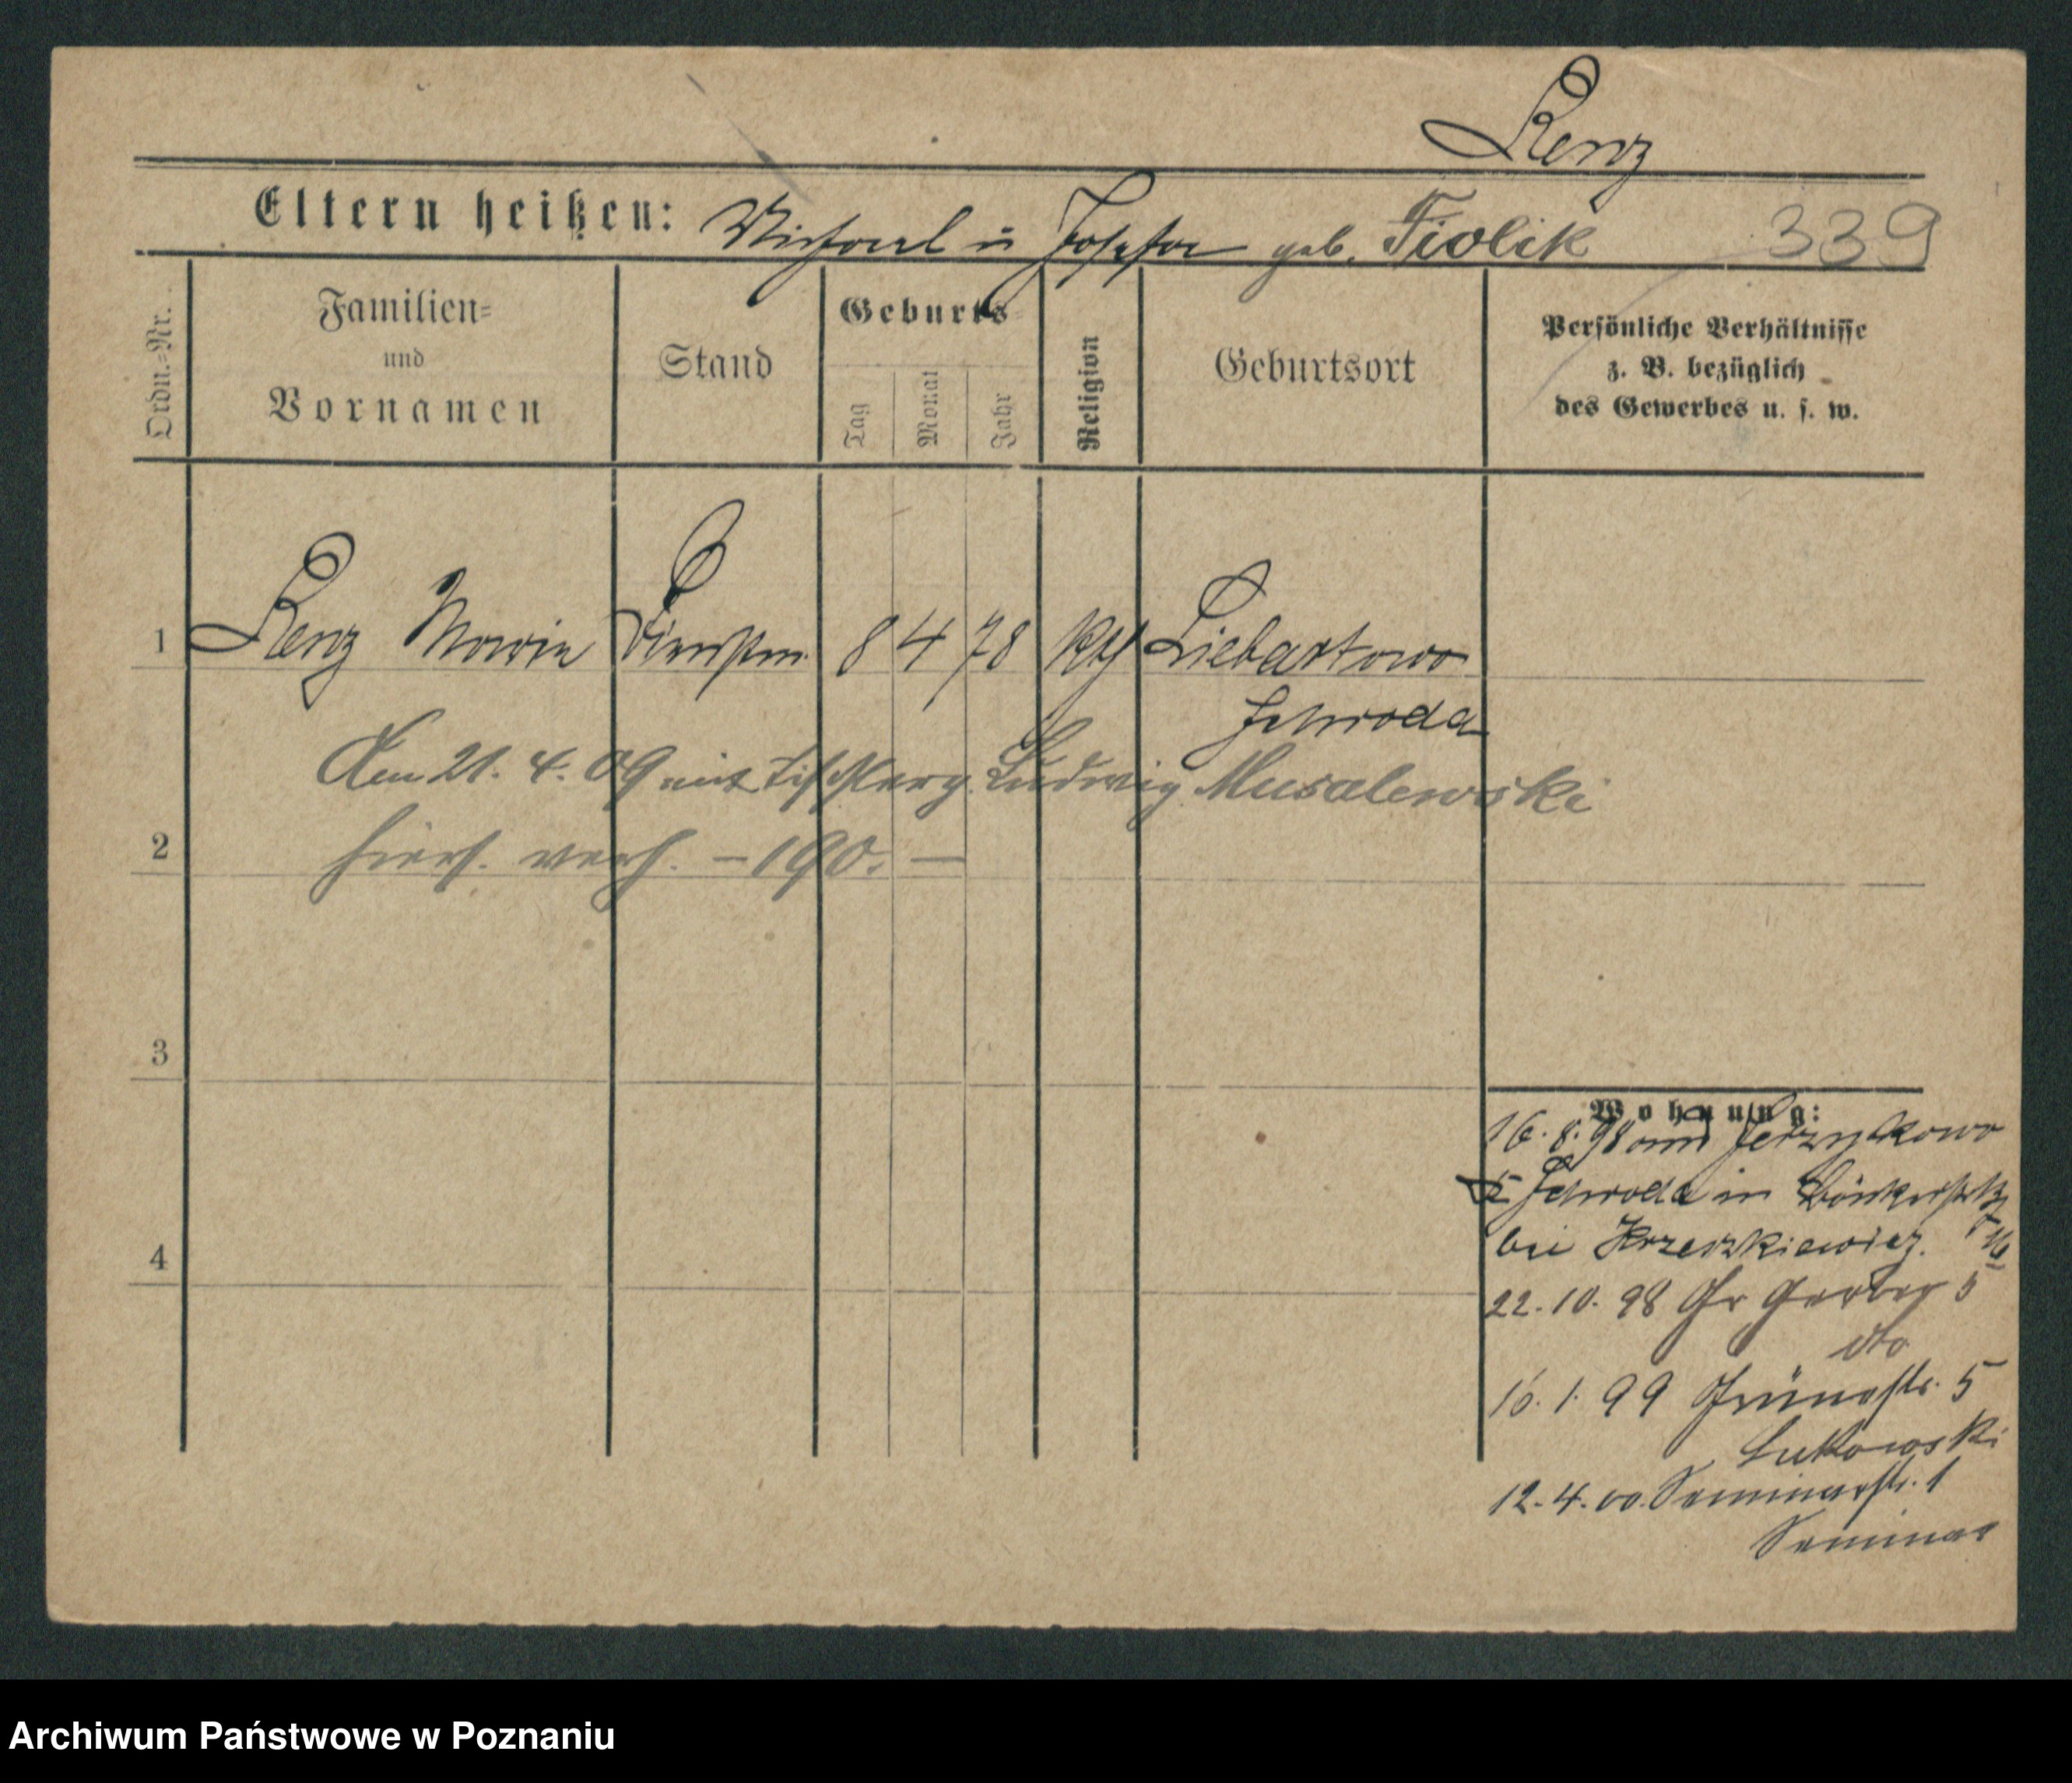 Renz
Eltern heißen: Michael u Josefa geb. Fiolik 339
Ordn.=Nr.
Familien=
und
Vornamen
Stand
Geburts=
Tag
Monat
Jahr
Religion
Geburtsort
Persönliche Verhältnisse
z. B. bezüglich
des Gewerbes u. s. w.
1 Renz Marie Dienstm. 8 4 78 kth Liebartowo
Schroda
Am 21. 4. 09 mit Tischlerg. Ludwig Musalewski
2 hiers. verh. – 190. –
3
Wohnung:
16. 8. 98 von Jerzykowo
Schroda in
4 bei
22. 10. 98 Gr Gerber 5
dto
16. 1. 99 Grünestr. 5
Lukowski
12. 4. 00. Seminarstr. 1
Seminar
Archiwum Państwowe w Poznaniu